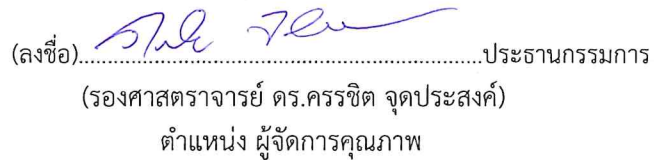 (ลงชื่อ)................................................................ประธานกรรมการ
(รองศาสตราจารย์ ดร.ครรชิต จุดประสงค์)
ตำแหน่ง ผู้จัดการคุณภาพ